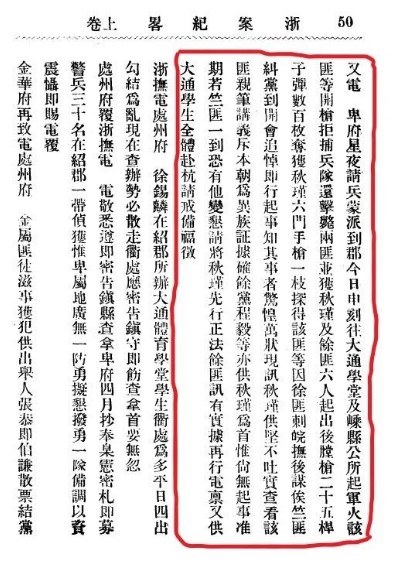 50 浙案紀畧 上卷
又電 卑府星夜請兵蒙派到郡今日申刻往大通學堂及嵊縣公所起軍火該
匪等開槍拒捕兵隊還擊斃兩匪並獲秋瑾及餘匪六人起出後膛槍二十五桿
子彈數百枚奪獲秋瑾六門手槍一枝探得該匪等因徐匪刺皖撫後謀俟竺匪
糾黨到開會追悼即行起事知其事者驚惶萬狀現訊秋瑾供堅不吐實查看該
匪親筆講義斥本朝爲異族証據確餘黨程毅等亦供秋瑾爲首惟尙無起事准
期若竺匪一到恐有他變懇請將秋瑾先行正法餘匪訊有實據再行電禀又供
大通學生全體赴杭請戒備福徵
浙撫電處州府 徐錫麟在紹郡所辦大通體育學堂學生衢處爲多平日四出
勾結爲亂現在查辦勢必散走衢處應密告鎮守即飭查拿首要無忽
處州府覆浙撫電 電敬悉遵即密告鎮縣查拿卑府四月抄奉臬憲密札即募
警兵三十名在紹郡一帶偵獲惟卑屬地廣無一防勇擬懇撥勇一隊備調以資
震懾即賜電覆
金華府再致電處州府 金屬匪徒滋事獲犯供出舉人張恭即伯謙散票結黨